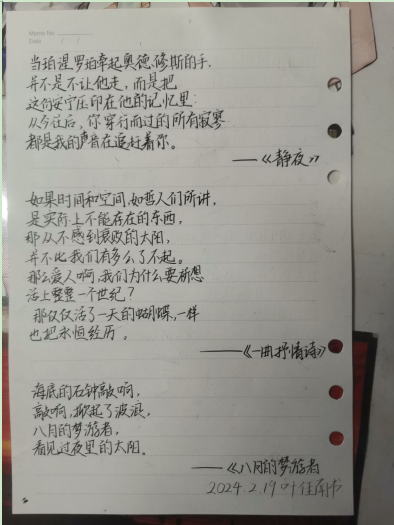 Memo No.
Date / /
当珀涅罗珀牵起奥德修斯的手,
并不是不让他走,而是把
这份安宁压印在他的记忆里:
从今往后,你穿行而过的所有寂寥
都是我的声音在追赶着你。
——《静夜》
如果时间和空间,如哲人们所讲,
是实际上不能存在的东西,
那从不感到衰败的太阳,
并不比我们有多么了不起。
那么爱人啊,我们为什么要祈想
活上整整一个世纪?
那仅仅活了一天的蝴蝶,一样
也把永恒经历。
——《一曲抒情诗》
海底的石钟敲响,
敲响,掀起了波浪,
八月的梦游者,
看见过夜里的太阳。
——《八月的梦游者
2024.2.19 叶佳南书